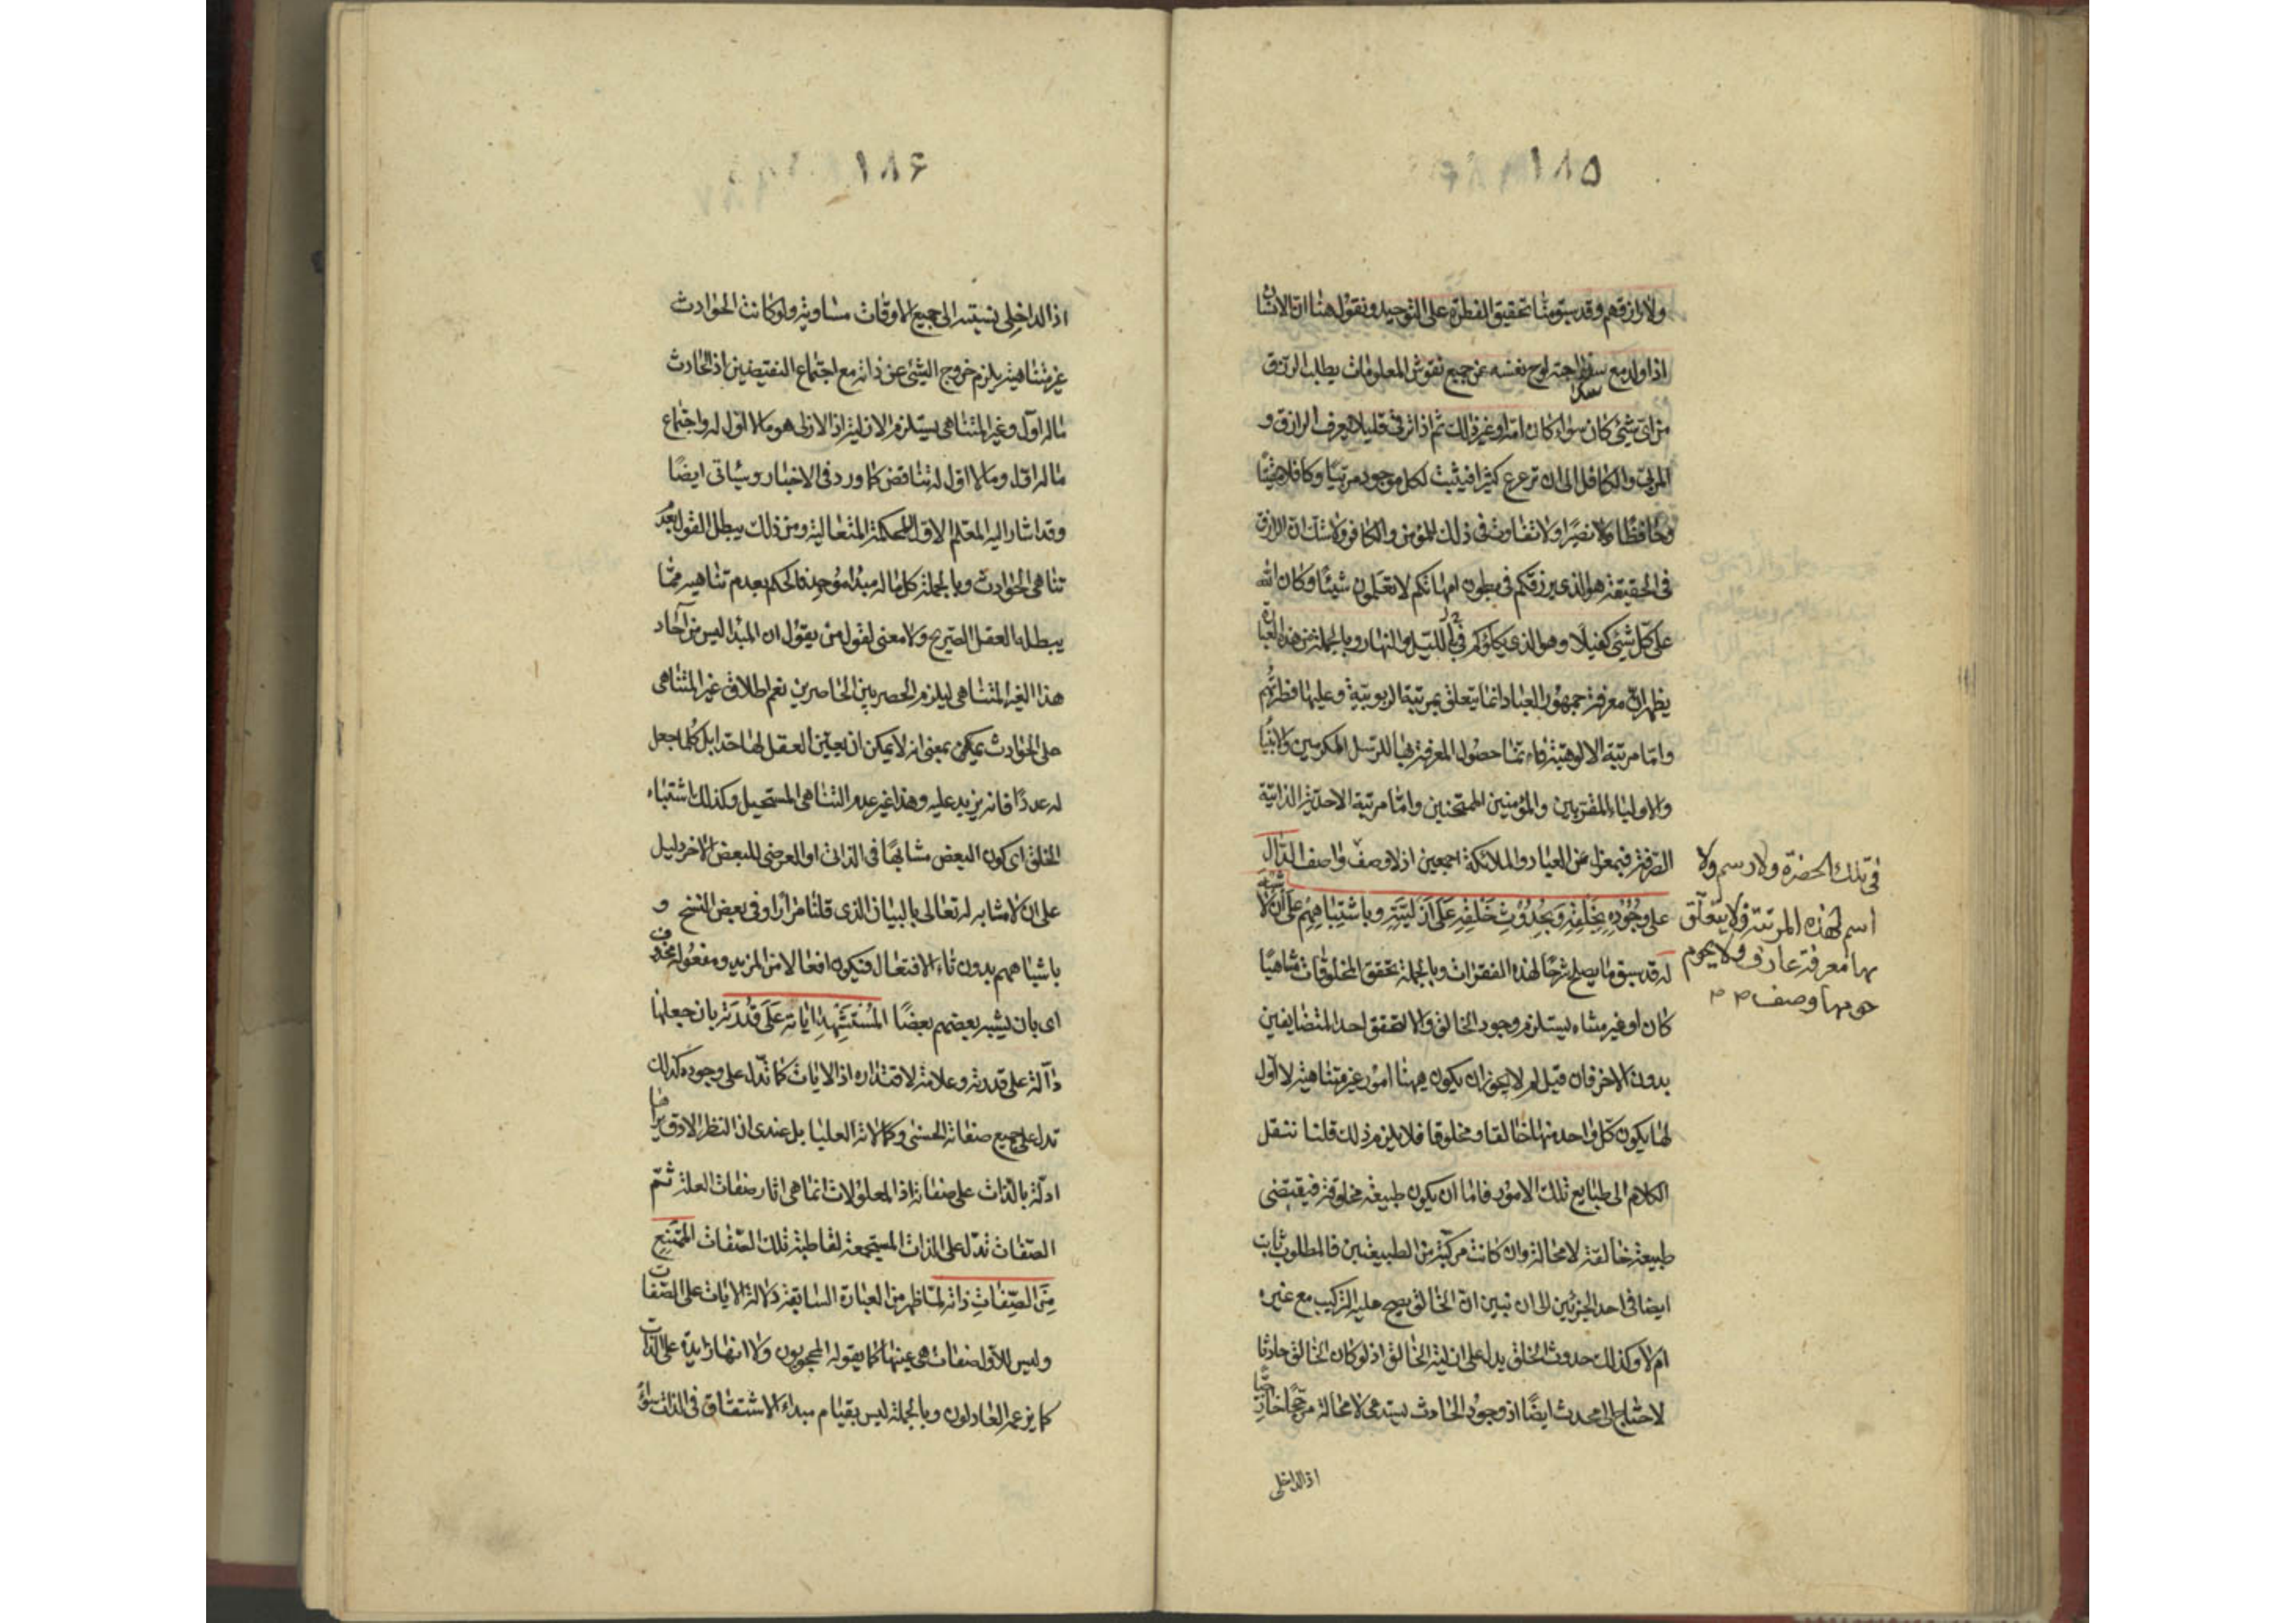 ١٨٥
ولا رازقهم وقد سبق منا تحقيق الفطرة على التوحيد ونقول هنا ان الانسان
اذا ولد مع لوح نفسه عن جميع نقوش المعلومات يطلب الرزق
من اى شىء كان سواء كان امه او غير ذلك ثم اذا ترقى قليلا يعرف الرازق و
المربى والكافل الى ان ترعرع كثيرا فيثبت لكل موجود مربيا وكافلا
وحافظا ونصيرا ولا تفاوت فى ذلك للمؤمن والكافر ولا شك ان الرازق
فى الحقيقة هو الذى يرزقكم فى بطون امهاتكم لا تعلمون شيئا وكان الله
على كل شىء كفيلا وهو الذى يكلؤكم فى الليل والنهار وبالجملة من هذه العبارة
يظهر ان معرفة جمهور العباد انما يتعلق بمرتبة الربوبية وعليها فطرتهم
واما مرتبة الالوهية فانما حصول المعرفة بها للرسل المكرمين والانبياء
والاولياء المقربين والمؤمنين الممتحنين واما مرتبة الاحدية الذاتية
الصرفة فبمعزل عن العباد والملائكة اجمعين اذ لا وصف واصف الدال
فى تلك الحضرة ولا رسم ولا
اسم لهذه المرتبة ولا يتعلق
بها معرفة عارف ولا يحوم
حومها وصف
على وجوده بخلقه وبحدوث خلقه على ازليته وباشتباههم على ان لا شبه
له قد سبق ما يصلح شرحا لهذه الفقرات وبالجملة تحقق المخلوقات متناهيا
كان او غير متناه يستلزم وجود الخالق والا لتحقق احد المتضايفين
بدون الاخر فان قيل لم لا يجوز ان يكون ههنا امور غير متناهية لا اول
لها يكون كل واحد منها خالقا ومخلوقا فلا يلزم ذلك قلنا ننقل
الكلام الى طبايع تلك الامور فاما ان يكون طبيعة مخلوقة فيقتضى
طبيعة خالقة لا محالة وان كانت مركبة من الطبيعتين فالمطلوب ثابت
ايضا فى احد الجزئين الى ان نبين ان الخالق يصح عليه التركيب مع غيره
ام لا وكذلك حدوث الخلق يدل على ازلية الخالق اذ لو كان الخالق حادثا
لاحتاج الى محدث ايضا اذ وجود الحادث يستدعى لا محالة مرجحا خارجيا
اذ الداخلى
١٨۶
اذ الداخلى نسبته الى جميع الاوقات متساوية ولو كانت الحوادث
غير متناهية يلزم خروج الشىء عن ذاته مع اجتماع النقيضين اذ الحادث
ما له اول وغير المتناهى يستلزم الازلية اذ الازلى هو ما لا اول له واجتماع
ما له اول وما لا اول له تناقض كما ورد فى الاخبار وسياتى ايضا
وقد اشار اليه المعلم الاول للحكمة المتعالية ومن ذلك يبطل القول بعدم
تناهى الحوادث وبالجملة كل ما له مبدأ موجد فالحكم بعدم تناهيه مما
يبطله العقل الصريح ولا معنى لقول من يقول ان المبدأ ليس من آحاد
هذا الغير المتناهى ليلزم الحصر بين الحاصرين نعم اطلاق غير المتناهى
على الحوادث يمكن بمعنى انه لا يمكن ان يعين العقل لها حدا بل كلما جعل
له عددا فانه يزيد عليه وهذا غير عدم التناهى المستحيل وكذلك اشتباه
الخلق اى كون البعض مشابها فى الذات او العرضى للبعض الاخر دليل
على ان لا مشابه له تعالى بالبيان الذى قلنا مرارا وفى بعض النسخ و
باشباههم بدون تاء الافتعال فيكون افعالا من المزيد ومفعوله محذوف
اى بان يشبه بعضهم بعضا المستشهد اياته على قدرته بان جعلها
دالة على قدرته وعلامة لاقتداره اذ الايات كما تدل على وجوده كذلك
تدل على جميع صفاته الحسنى وكمالاته العليا بل عندى ان النظر الادق يراها
ادلة بالذات على صفاته اذ المعلولات انما هى اثار صفات العلة ثم
الصفات تدل على الذات المستجمعة لقاطبة تلك الصفات الممتنع
من الصفات ذاته لما ظهر من العبارة السابقة دلالة الايات على الصفات
وليس للاول صفات هى عينها كما يقوله المحجوبون ولا انها زايدة على الذات
كما يزعمه العادلون وبالجملة ليس بقيام مبداء الاشتقاق فى الذات سواء